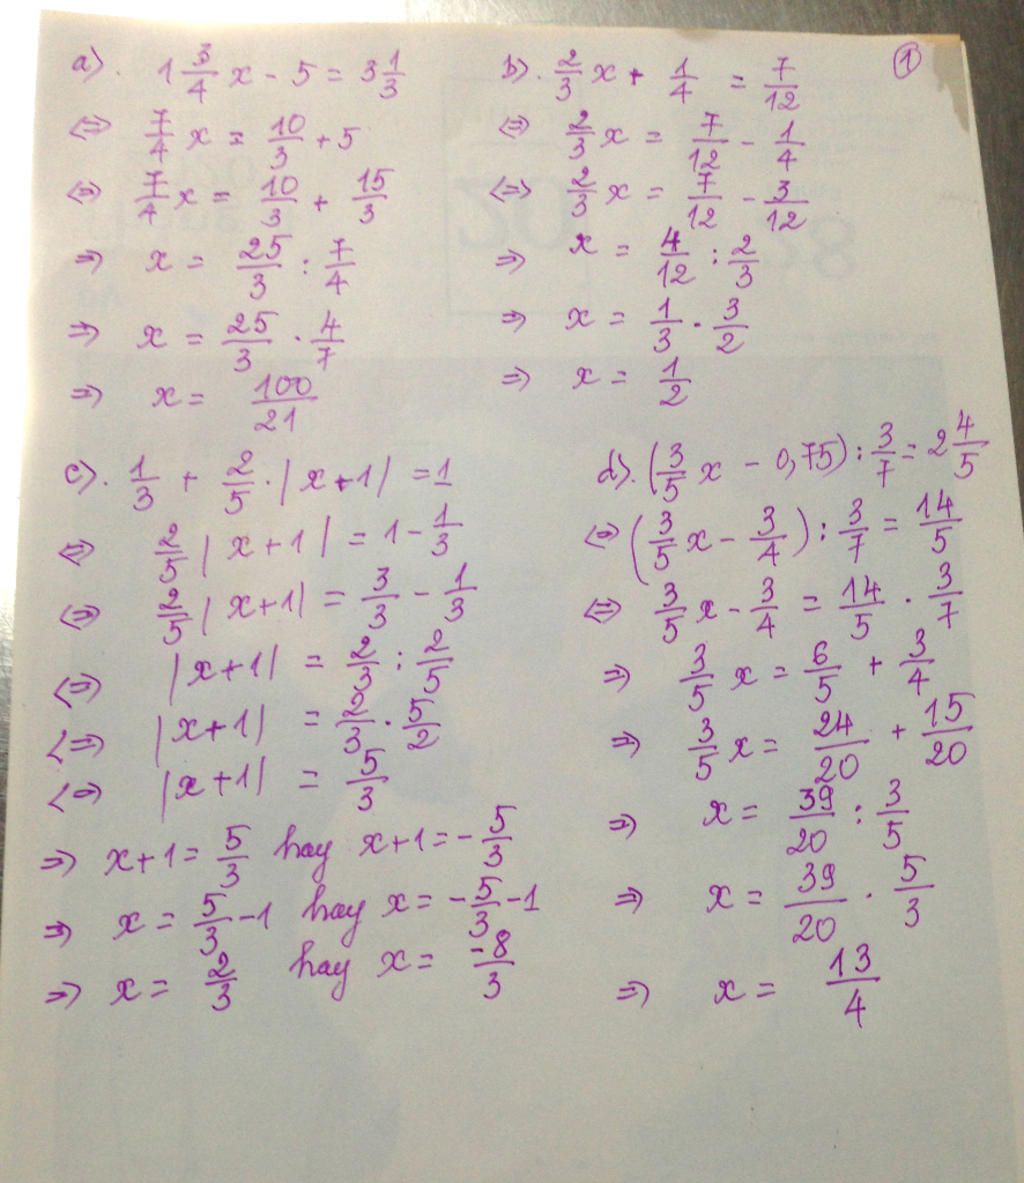 ①
a). 1 3/4 x - 5 = 3 1/3
⇔ 7/4 x = 10/3 + 5
⇔ 7/4 x = 10/3 + 15/3
⇒ x = 25/3 : 7/4
⇒ x = 25/3 . 4/7
⇒ x = 100/21
b). 2/3 x + 1/4 = 7/12
⇔ 2/3 x = 7/12 - 1/4
⇔ 2/3 x = 7/12 - 3/12
⇒ x = 4/12 : 2/3
⇒ x = 1/3 . 3/2
⇒ x = 1/2
c). 1/3 + 2/5 . |x+1| = 1
⇔ 2/5 |x+1| = 1 - 1/3
⇔ 2/5 |x+1| = 3/3 - 1/3
⇔ |x+1| = 2/3 : 2/5
⇔ |x+1| = 2/3 . 5/2
⇔ |x+1| = 5/3
⇒ x+1 = 5/3 hay x+1 = -5/3
⇒ x = 5/3 - 1 hay x = -5/3 - 1
⇒ x = 2/3 hay x = -8/3
d). (3/5 x - 0,75) : 3/7 = 2 4/5
⇔ (3/5 x - 3/4) : 3/7 = 14/5
⇔ 3/5 x - 3/4 = 14/5 . 3/7
⇒ 3/5 x = 6/5 + 3/4
⇒ 3/5 x = 24/20 + 15/20
⇒ x = 39/20 : 3/5
⇒ x = 39/20 . 5/3
⇒ x = 13/4